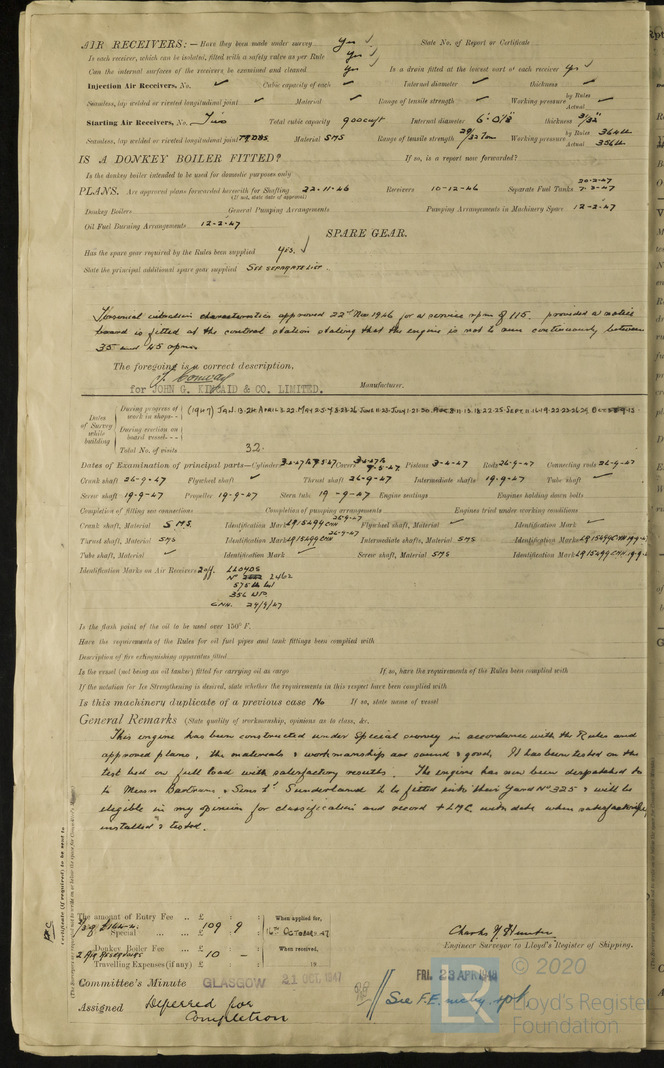 AIR RECEIVERS:— Have they been made under survey Yes State No. of Report or Certificate
Is each receiver, which can be isolated, fitted with a safety valve as per Rule Yes
Can the internal surfaces of the receivers be examined and cleaned Yes Is a drain fitted at the lowest part of each receiver Yes
Injection Air Receivers, No. Cubic capacity of each Internal diameter thickness
Seamless, lap welded or riveted longitudinal joint Material Range of tensile strength Working pressure by Rules Actual
Starting Air Receivers, No. Two Total cubic capacity 900 cuft Internal diameter 6'. 0 1/8" thickness 31/32"
Seamless, lap welded or riveted longitudinal joint TRDBS. Material SMS Range of tensile strength 29/32 Ton Working pressure by Rules 364 Actual 356
IS A DONKEY BOILER FITTED? If so, is a report now forwarded?
Is the donkey boiler intended to be used for domestic purposes only
PLANS. Are approved plans forwarded herewith for Shafting 22-11-46 Receivers 10-12-46 Separate Fuel Tanks 20-2-47 7-2-47
(If not, state date of approval)
Donkey Boilers General Pumping Arrangements Pumping Arrangements in Machinery Space 12-2-47
Oil Fuel Burning Arrangements 12-2-47
SPARE GEAR.
Has the spare gear required by the Rules been supplied Yes.
State the principal additional spare gear supplied See separate list.
Torsional vibration characteristics approved 22nd Nov 1946 for a service rpm of 115, provided a notice
board is fitted at the control station stating that the engine is not to run continuously between
35 and 45 rpm.
The foregoing is a correct description,
for JOHN G. KINCAID & CO. LIMITED. Manufacturer.
Dates of Survey while building
During progress of work in shops - -
During erection on board vessel - - -
Total No. of visits 32.
Dates of Examination of principal parts—Cylinders Covers Pistons 3-4-47 Rods 26-9-47 Connecting rods 26-9-47
Crank shaft 26-9-47 Flywheel shaft Thrust shaft 26-9-47 Intermediate shafts 19.9.47 Tube shaft
Screw shaft 19-9-47 Propeller 19-9-47 Stern tube 19-9-47 Engine seatings Engines holding down bolts
Completion of fitting sea connections Completion of pumping arrangements Engines tried under working conditions
Crank shaft, Material SMS. Identification Mark 26-9-47 Flywheel shaft, Material Identification Mark
Thrust shaft, Material SMS Identification Mark 26-9-47 Intermediate shafts, Material SMS Identification Marks
Tube shaft, Material Identification Mark Screw shaft, Material SMS Identification Mark
Identification Marks on Air Receivers 2 off. LLOYDS
No 2462
356 WP
CNH. 29/9/47
Is the flash point of the oil to be used over 150° F.
Have the requirements of the Rules for oil fuel pipes and tank fittings been complied with
Description of fire extinguishing apparatus fitted
Is the vessel (not being an oil tanker) fitted for carrying oil as cargo If so, have the requirements of the Rules been complied with
If the notation for Ice Strengthening is desired, state whether the requirements in this respect have been complied with
Is this machinery duplicate of a previous case No If so, state name of vessel
General Remarks (State quality of workmanship, opinions as to class, &c.
This engine has been constructed under Special survey in accordance with the Rules and
approved plans, the materials & workmanship are sound & good. It has been tested on the
test bed on full load with satisfactory results. The engines has now been despatched to
to Messrs Bartram & Sons Ld Sunderland to be fitted into their Yard No 325 & will be
eligible in my opinion for classification and record + LMC with date when satisfactorily
installed & tested.
Certificate (if required) to be sent to
The amount of Entry Fee .. £ : : When applied for,
Special ... ... £ 109 : 9 : 16th October 47
Donkey Boiler Fee ... £ : : When received,
2 Air Receivers 10 —
Travelling Expenses (if any) £ : : 19
Engineer Surveyor to Lloyd's Register of Shipping.
Committee's Minute GLASGOW 21 OCT 1947
FRI. 23 APR 1948
Assigned Deferred for
Completion
See F.E. mchy. rpt.
© 2020
Lloyd's Register
Foundation